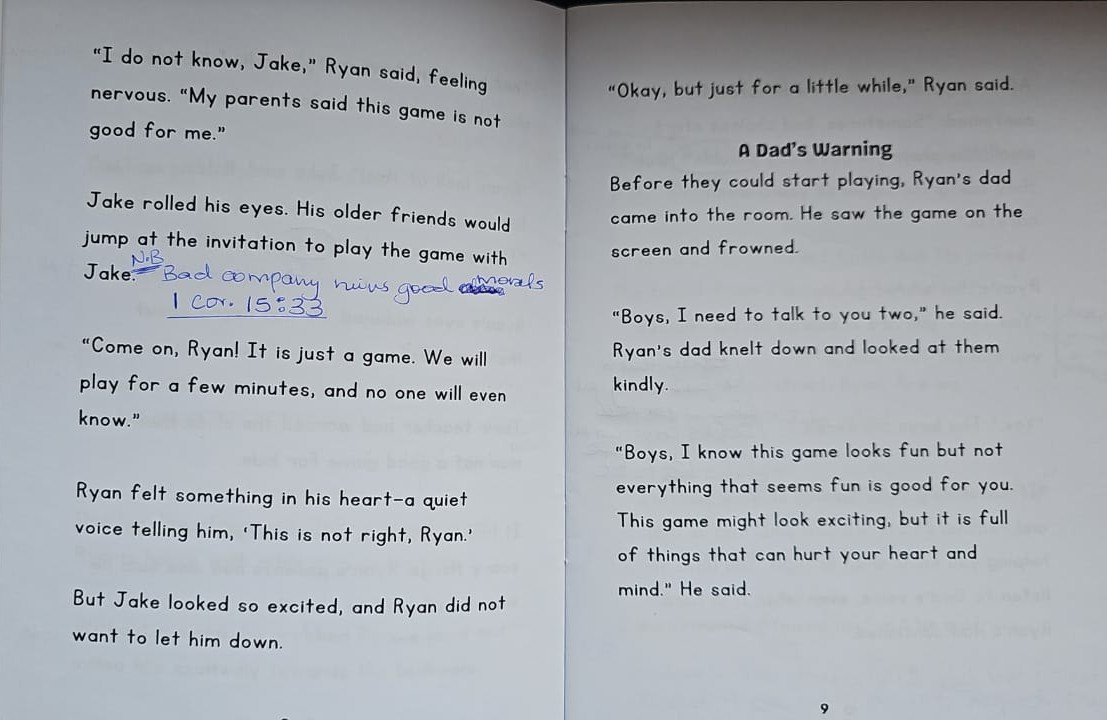 “I do not know, Jake,” Ryan said, feeling
nervous. “My parents said this game is not
good for me.”
Jake rolled his eyes. His older friends would
jump at the invitation to play the game with
Jake.
N.B Bad company ruins good morals
1 Cor. 15:33
“Come on, Ryan! It is just a game. We will
play for a few minutes, and no one will even
know.”
Ryan felt something in his heart–a quiet
voice telling him, ‘This is not right, Ryan.’
But Jake looked so excited, and Ryan did not
want to let him down.
“Okay, but just for a little while,” Ryan said.
A Dad’s Warning
Before they could start playing, Ryan’s dad
came into the room. He saw the game on the
screen and frowned.
“Boys, I need to talk to you two,” he said.
Ryan’s dad knelt down and looked at them
kindly.
“Boys, I know this game looks fun but not
everything that seems fun is good for you.
This game might look exciting, but it is full
of things that can hurt your heart and
mind.” He said.
9